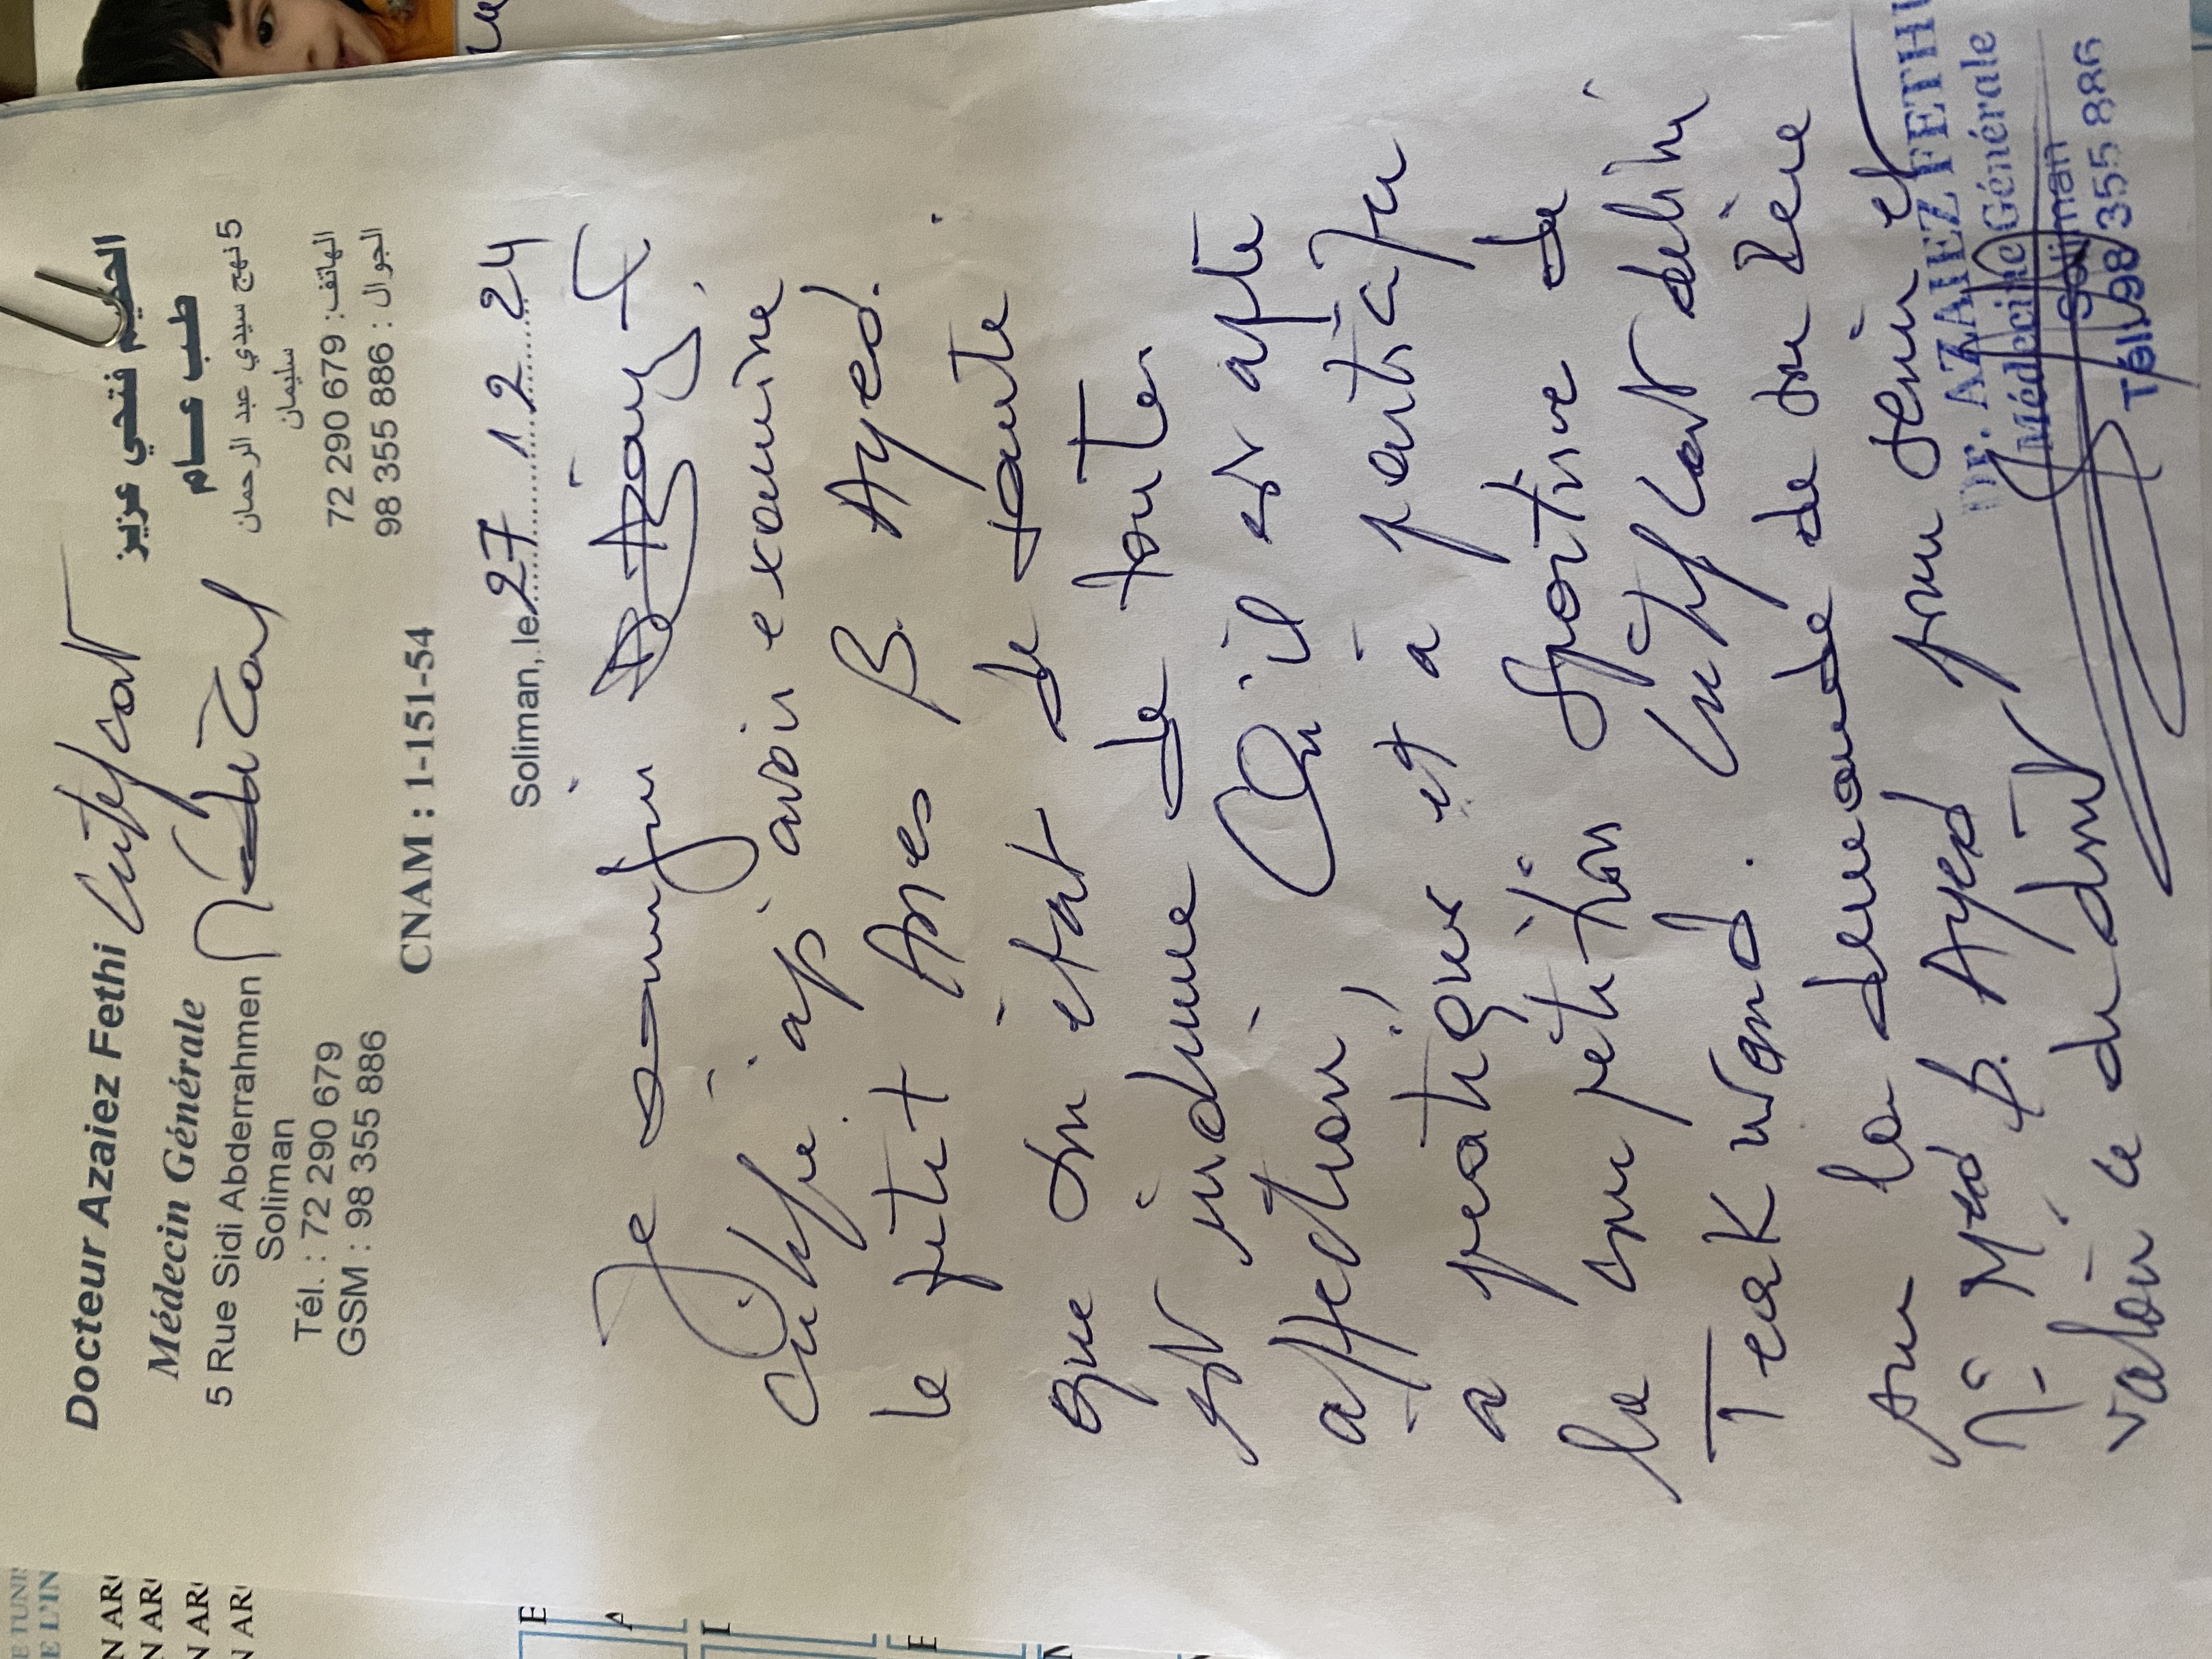 Docteur Azaiez Fethi
Médecin Générale
5 Rue Sidi Abderrahmen
Soliman
Tél. : 72 290 679
GSM : 98 355 886
الحكيم فتحي عزيز
طب عــام
5 نهج سيدي عبد الرحمان
سليمان
الهاتف: 679 290 72
الجوال : 886 355 98
Certificat
Médical
CNAM : 1-151-54
Soliman, le 27 12 24
Je soussigné Dr Azaiez F
certifie. après avoir examiné
le petit Anes B. Ayed.
que son état de santé
est indemne de toute
affection! Qu'il est apte
à pratiquer et à participer
la compétition sportive de
Teakwand. Certificat délivré
sur la demande de son père
Mr Med B. Ayed pour servir et
valoir ce du droit
Dr. AZAIEZ FETHI
Médecine Générale
Soliman
Tél: 98 355 886
E TUNI
E L'IN
N AR
N AR
N AR
N AR
E
I
E